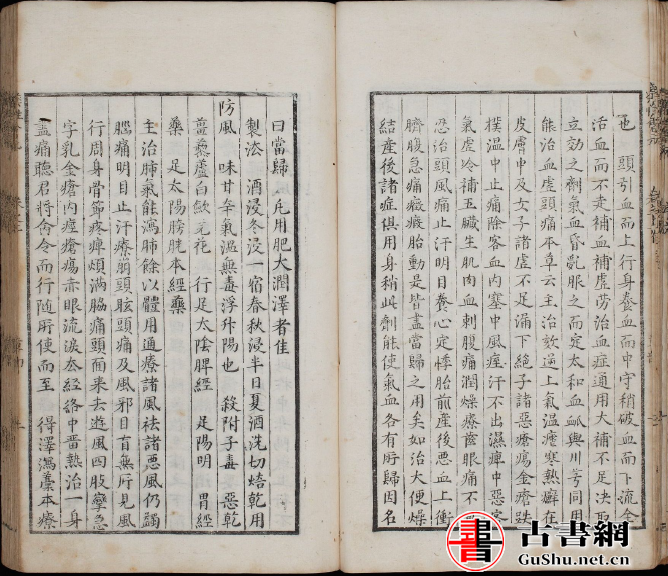 也 頭引血而上行身養血而中守稍破血而下流全
活血而不走補血補虛勞治血症通用大補不足決取
立効之劑氣血昏亂服之而定太和血與川芎同用
能治血虛頭痛本草云主治欬逆上氣溫瘧寒熱癬在
皮膚中及女子諸虛不足漏下絕子諸惡瘡瘍金瘡跌
撲溫中止痛除客血內塞中風痙汗不出濕痺中惡客
氣虛冷補五臟生肌肉血刺腹痛潤燥療齒眼痛不
忍治頭風痛止汗明目養心定悸胎前產後惡血上衝
臍腹急痛癥瘕胎動是皆盡當歸之用矣如治大便燥
結產後諸症俱用身稍此劑能使氣血各有所歸因名
曰當歸 凡用肥大潤澤者佳
製法 酒浸冬浸一宿春秋浸半日夏酒洗切焙乾用
防風 味甘辛氣溫無毒浮升陽也 殺附子毒 惡乾
薑藜蘆白蘞芫花 行足太陰脾經 足陽明 胃經
藥 足太陽膀胱本經藥
主治肺氣能瀉肺餘以體用通療諸風祛諸惡風仍蠲
腦痛明目止汗療崩頭眩頭痛及風邪目盲無所見風
行周身骨節疼痺煩滿脇痛頭面來去遊風四肢攣急
字乳金瘡內痙瘡瘍赤眼流淚叁經絡中畱熱治一身
盡痛聽君將命令而行隨所使而至 得澤瀉藁本療
書 古書網
GuShu.net.cn